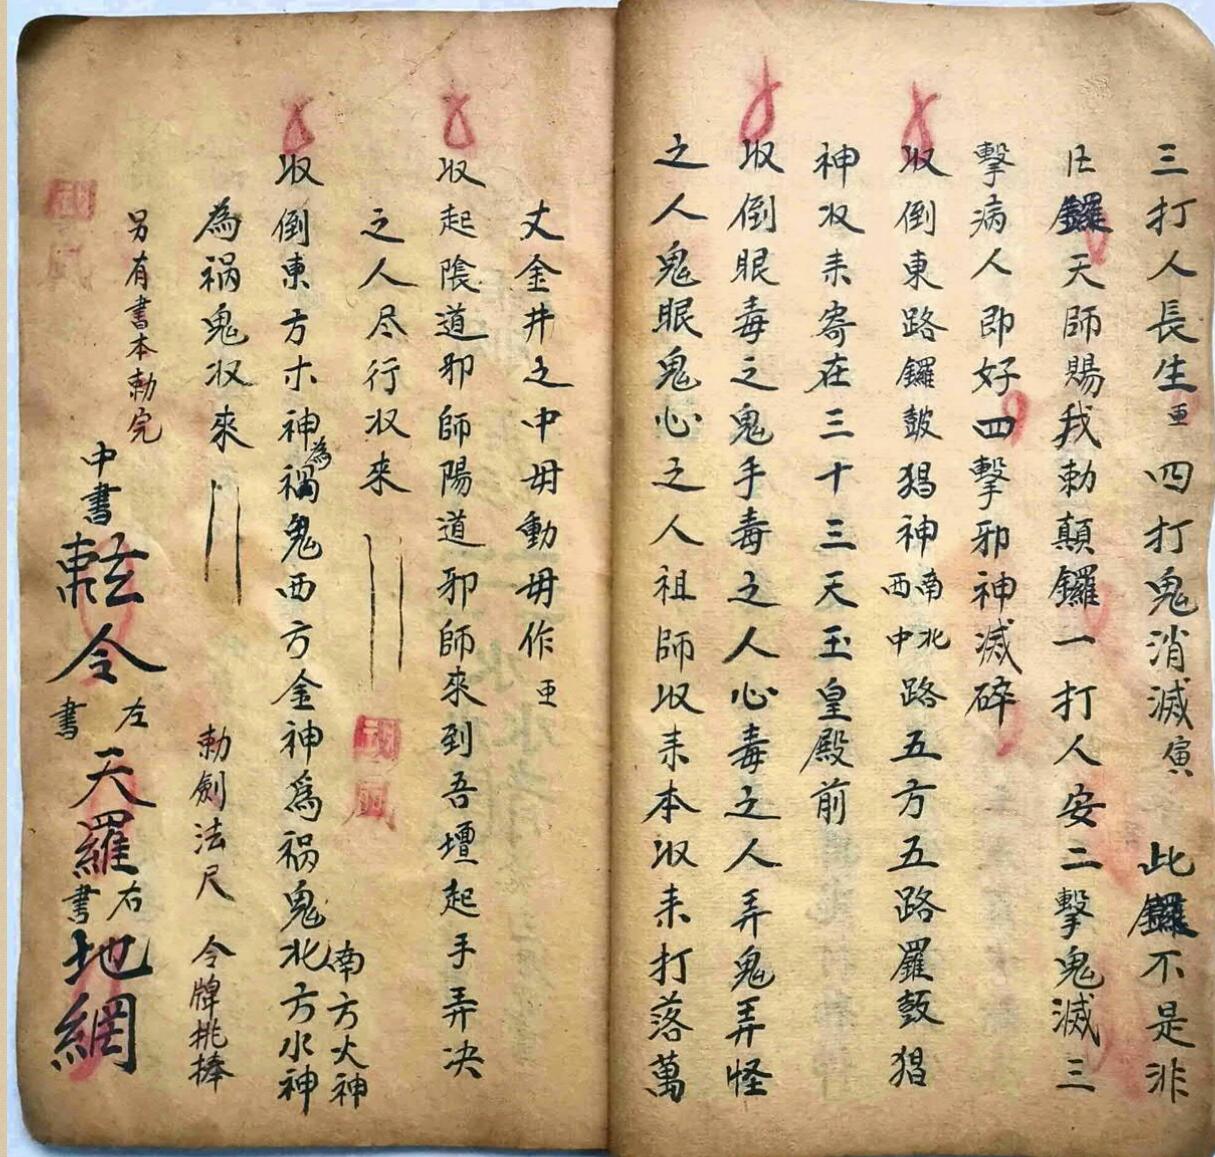 三打人長生亜 四打鬼消滅寅 此鑼不是非
㔾鑼天師賜我勅顛鑼一打人安二擊鬼滅三
擊病人即好四擊邪神滅碎
収倒東路鑼皷猖神南北西中路五方五路羅皷猖
神収耒寄在三十三天玉皇殿前
収倒眼毒之鬼手毒之人心毒之人弄鬼弄怪
之人鬼眼鬼心之人祖師収耒本収耒打落萬
丈金井之中毋動毋作亜
収起隂道邪師陽道邪師來到吾壇起手弄决
之人尽行収来
収倒東方木神為禍鬼西方金神為禍鬼北方水神
南方火神
為禍鬼収來
勅劍法尺 令牌挑捧
另有書本勅完
中書 令
左書 天羅
右書 地網